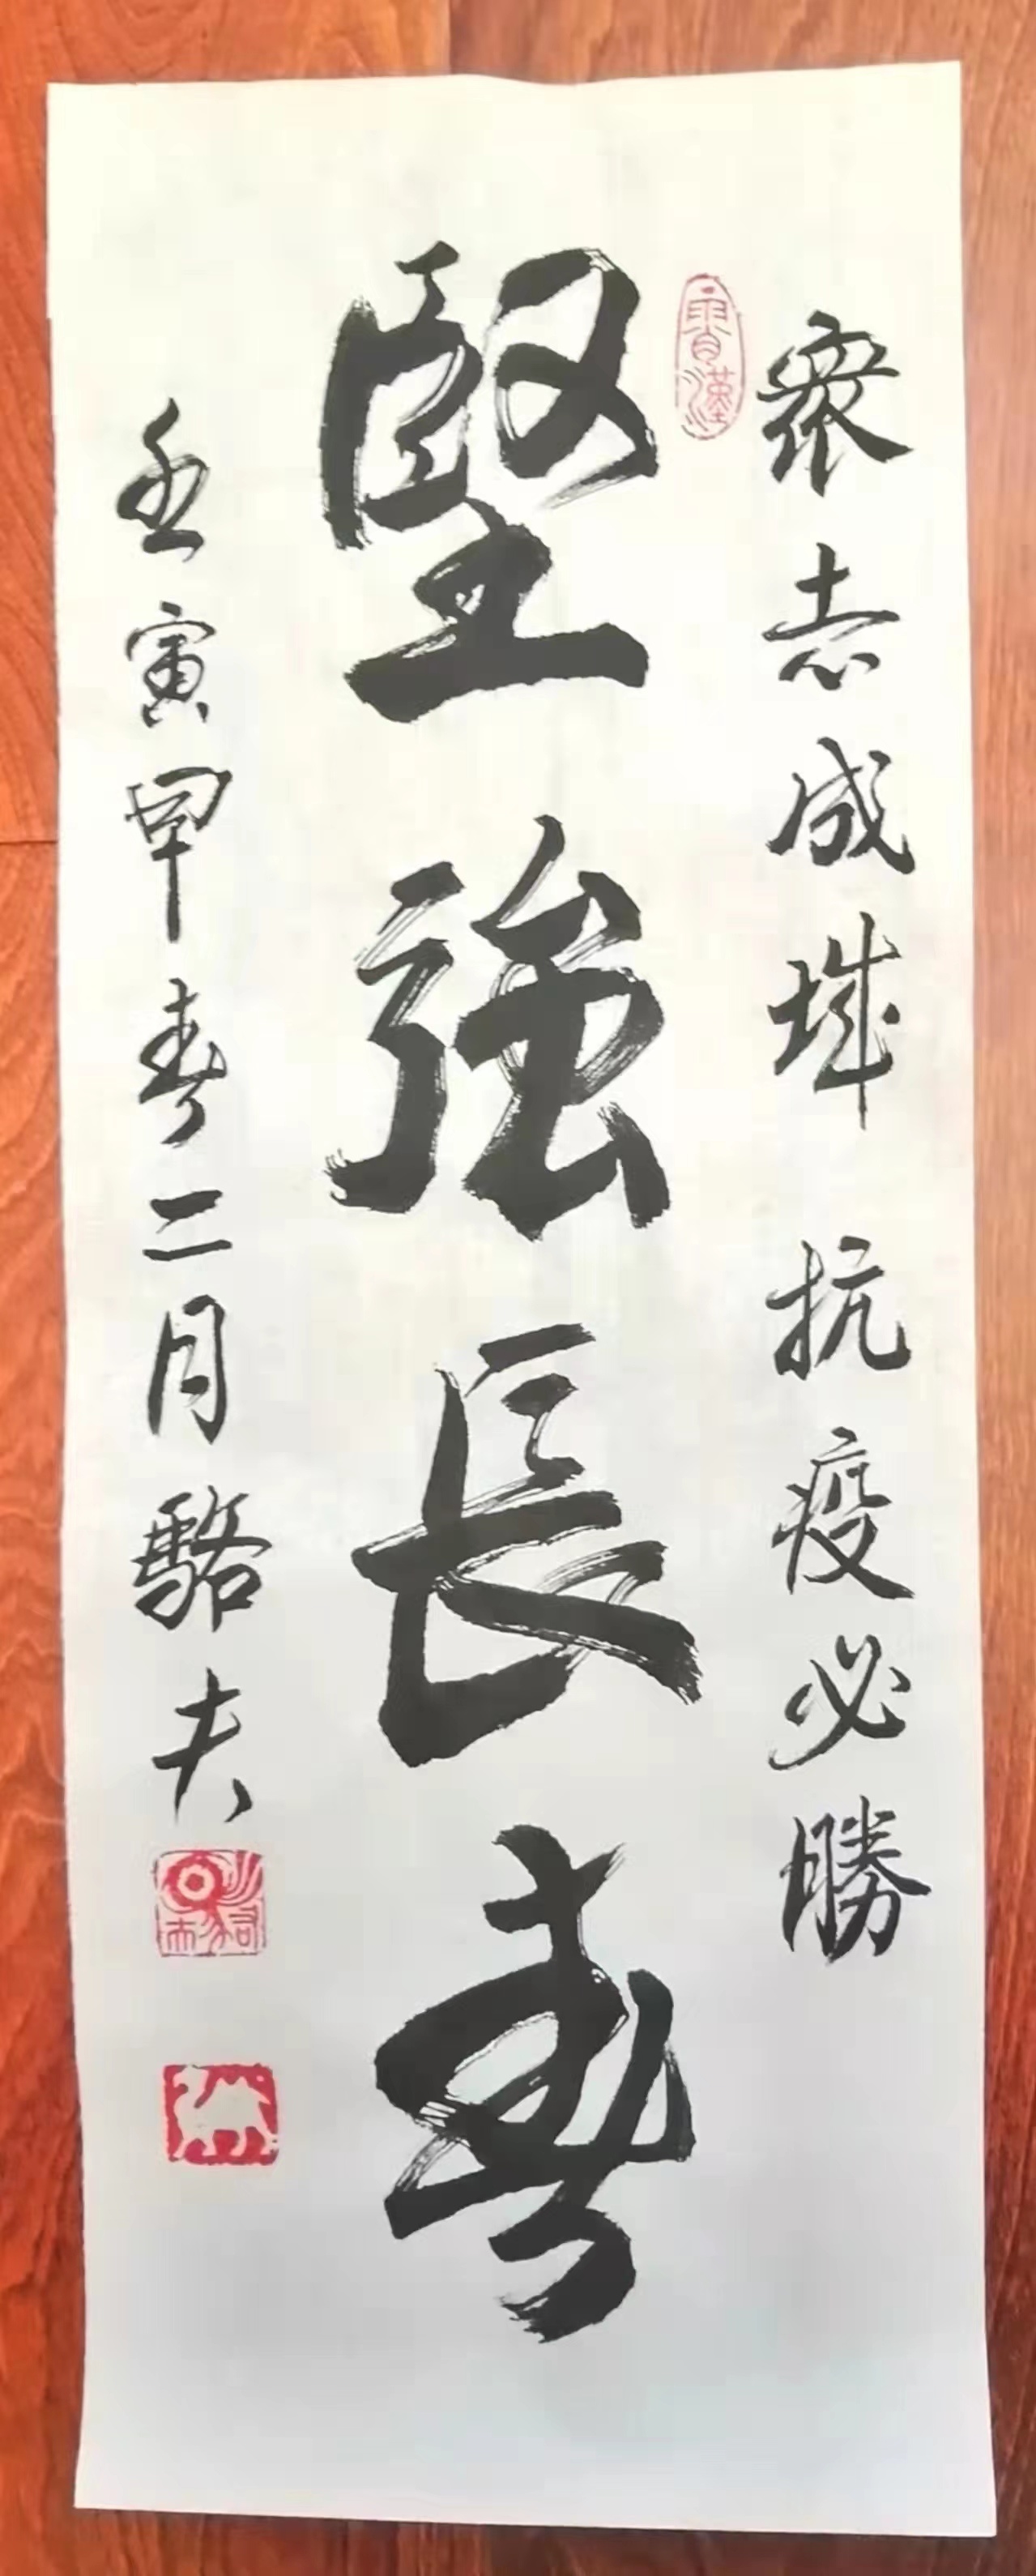 衆志成城 抗疫必勝
堅強長春
壬寅早春二月駱夫